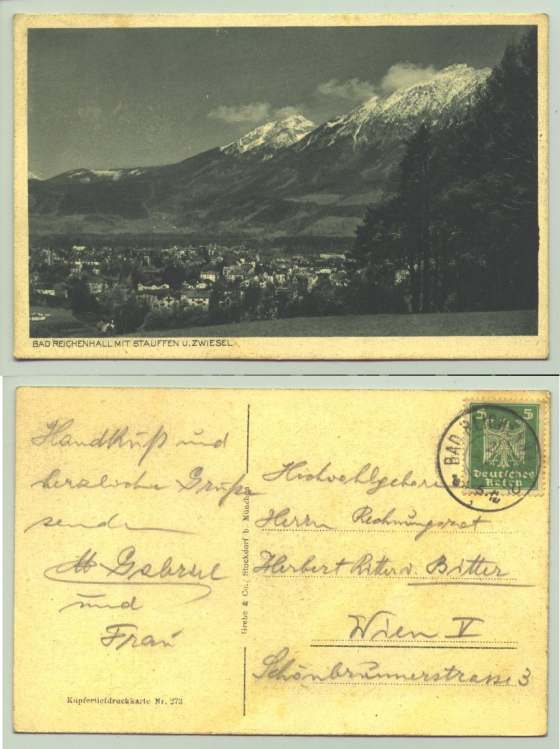 BAD REICHENHALL MIT STAUFFEN U. ZWIESEL.
Handkuß und
herzliche Grüße
sendet
Gabriel
und
Frau
Kupfertiefdruckkarte Nr. 273
Grebe & Co., Stockdorf b. München
5 5
Deutsches
Reich
BAD
Hochwohlgeboren
Herrn Rechnungsrat
Herbert Ritter v. Bitter
Wien V
Schönbrunnerstrasse 3